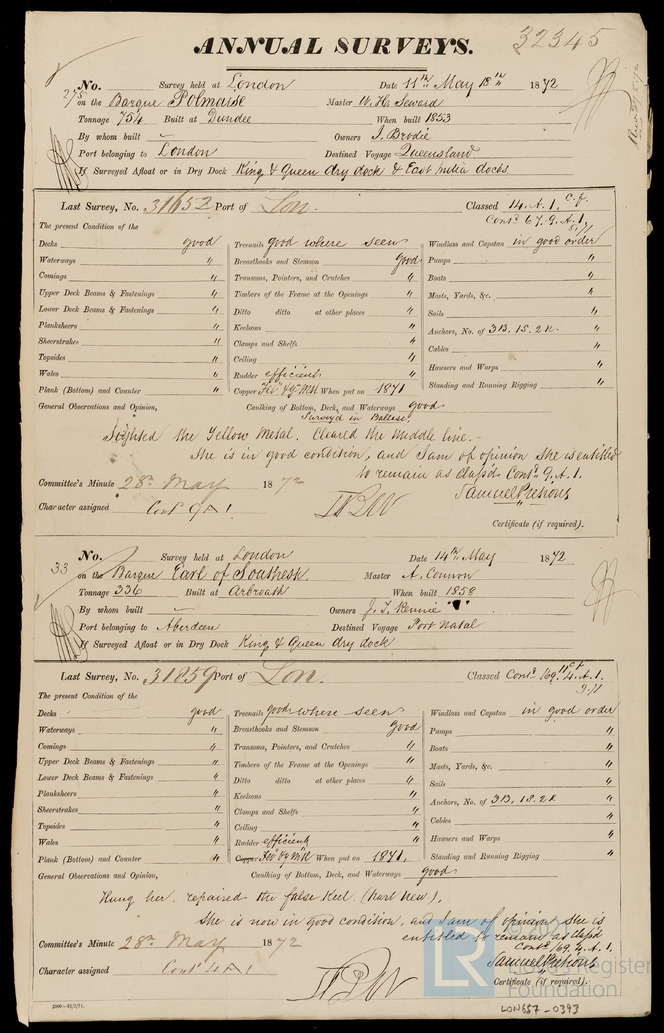 ANNUAL SURVEYS.
32345
No. Survey held at London Date 11th, May 18th, 1872
275 on the Barque Polmaise Master W. H. Seward
Tonnage 754 Built at Dundee When built 1853
By whom built — Owners J. Brodie
Port belonging to London Destined Voyage Queensland
If Surveyed Afloat or in Dry Dock King & Queen dry dock & East India docks.
Last Survey, No. 31652 Port of Lon. Classed 14. A. 1. c.f.
Contd 67. 9. A. 1.
The present Condition of the
Decks good Treenails good where seen Windlass and Capstan in good order
Waterways " Breasthooks and Stemson good Pumps "
Comings " Transoms, Pointers, and Crutches " Boats "
Upper Deck Beams & Fastenings " Timbers of the Frame at the Openings " Masts, Yards, &c. "
Lower Deck Beams & Fastenings " Ditto ditto at other places " Sails "
Planksheers " Keelsons " Anchors, No. of 3B. 1S. 2K. "
Sheerstrakes " Clamps and Shelfs " Cables "
Topsides " Ceiling " Hawsers and Warps "
Wales " Rudder efficient Standing and Running Rigging "
Plank (Bottom) and Counter " Copper When put on 1871
General Observations and Opinion, Caulking of Bottom, Deck, and Waterways good
Survey'd in Ballast.
Sighted the Yellow Metal. Cleared the middle line. —
She is in good condition, and I am of opinion she is entitled
to remain as class'd Contd. 9. A. 1.
Committee's Minute 28th May 1872 Samuel Pretious
Character assigned Contd 9 A 1
Certificate (if required).
No. Survey held at London Date 14th May 1872
33 on the Barque Earl of Southesk. Master A. Connon
Tonnage 336 Built at Arbroath When built 1858
By whom built — Owners J. T. Rennie
Port belonging to Aberdeen Destined Voyage Port Natal
If Surveyed Afloat or in Dry Dock King & Queen dry dock
Last Survey, No. 31859 Port of Lon. Classed Contd 169. 4. A. 1.
The present Condition of the
Decks good Treenails good where seen Windlass and Capstan in good order
Waterways " Breasthooks and Stemson good Pumps "
Comings " Transoms, Pointers, and Crutches " Boats "
Upper Deck Beams & Fastenings " Timbers of the Frame at the Openings " Masts, Yards, &c. "
Lower Deck Beams & Fastenings " Ditto ditto at other places " Sails "
Planksheers " Keelsons " Anchors, No. of 3B. 1S. 2K "
Sheerstrakes " Clamps and Shelfs " Cables "
Topsides " Ceiling " Hawsers and Warps "
Wales " Rudder efficient Standing and Running Rigging "
Plank (Bottom) and Counter " Copper When put on 1871.
General Observations and Opinion, Caulking of Bottom, Deck, and Waterways good
Hung her, repaired the false Keel (part new),
She is now in good condition, and I am of opinion she is
entitled to remain as class'd
Contd 169. 4. A. 1.
Committee's Minute 28th May 1872 Samuel Pretious
Character assigned Contd 4 A 1
Certificate (if required).
2000—13/2/71.
LR
Lloyd's Register
Foundation
LON657-0393